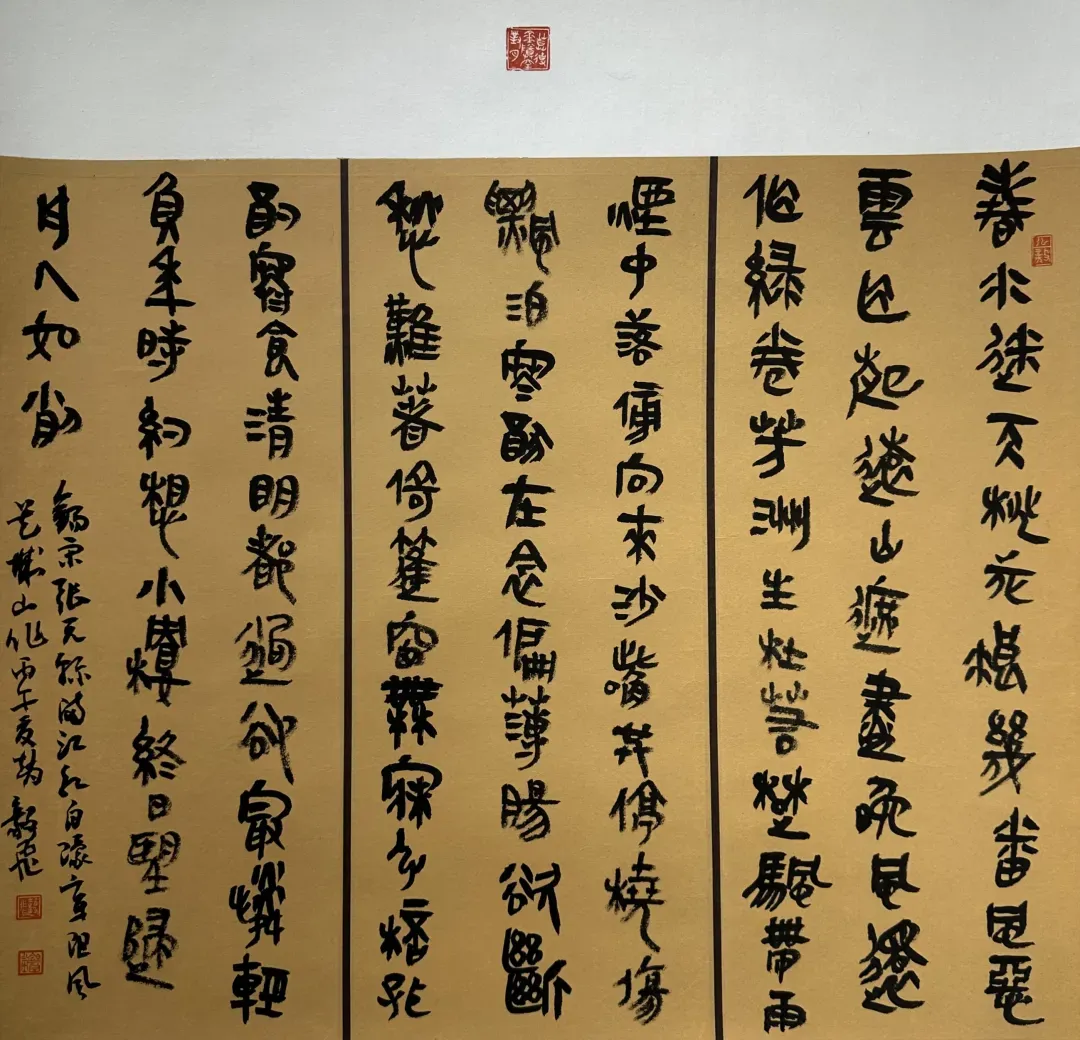 春水迷天桃花浪幾番風惡
雲乍起遠山遮盡晚風還
作綠卷芳洲生杜若楚颿帶雨
煙中落傍向來沙嘴共停橈傷
飄泊寒猶在念偏薄腸欲斷
愁難著倚篷窗無寐引杯孤
酌寒食清明都過卻最憐輕
負年時約想小樓終日望歸
舟人如削
錄宋張元幹滿江紅自豫章阻風
吳城山作丙午夏